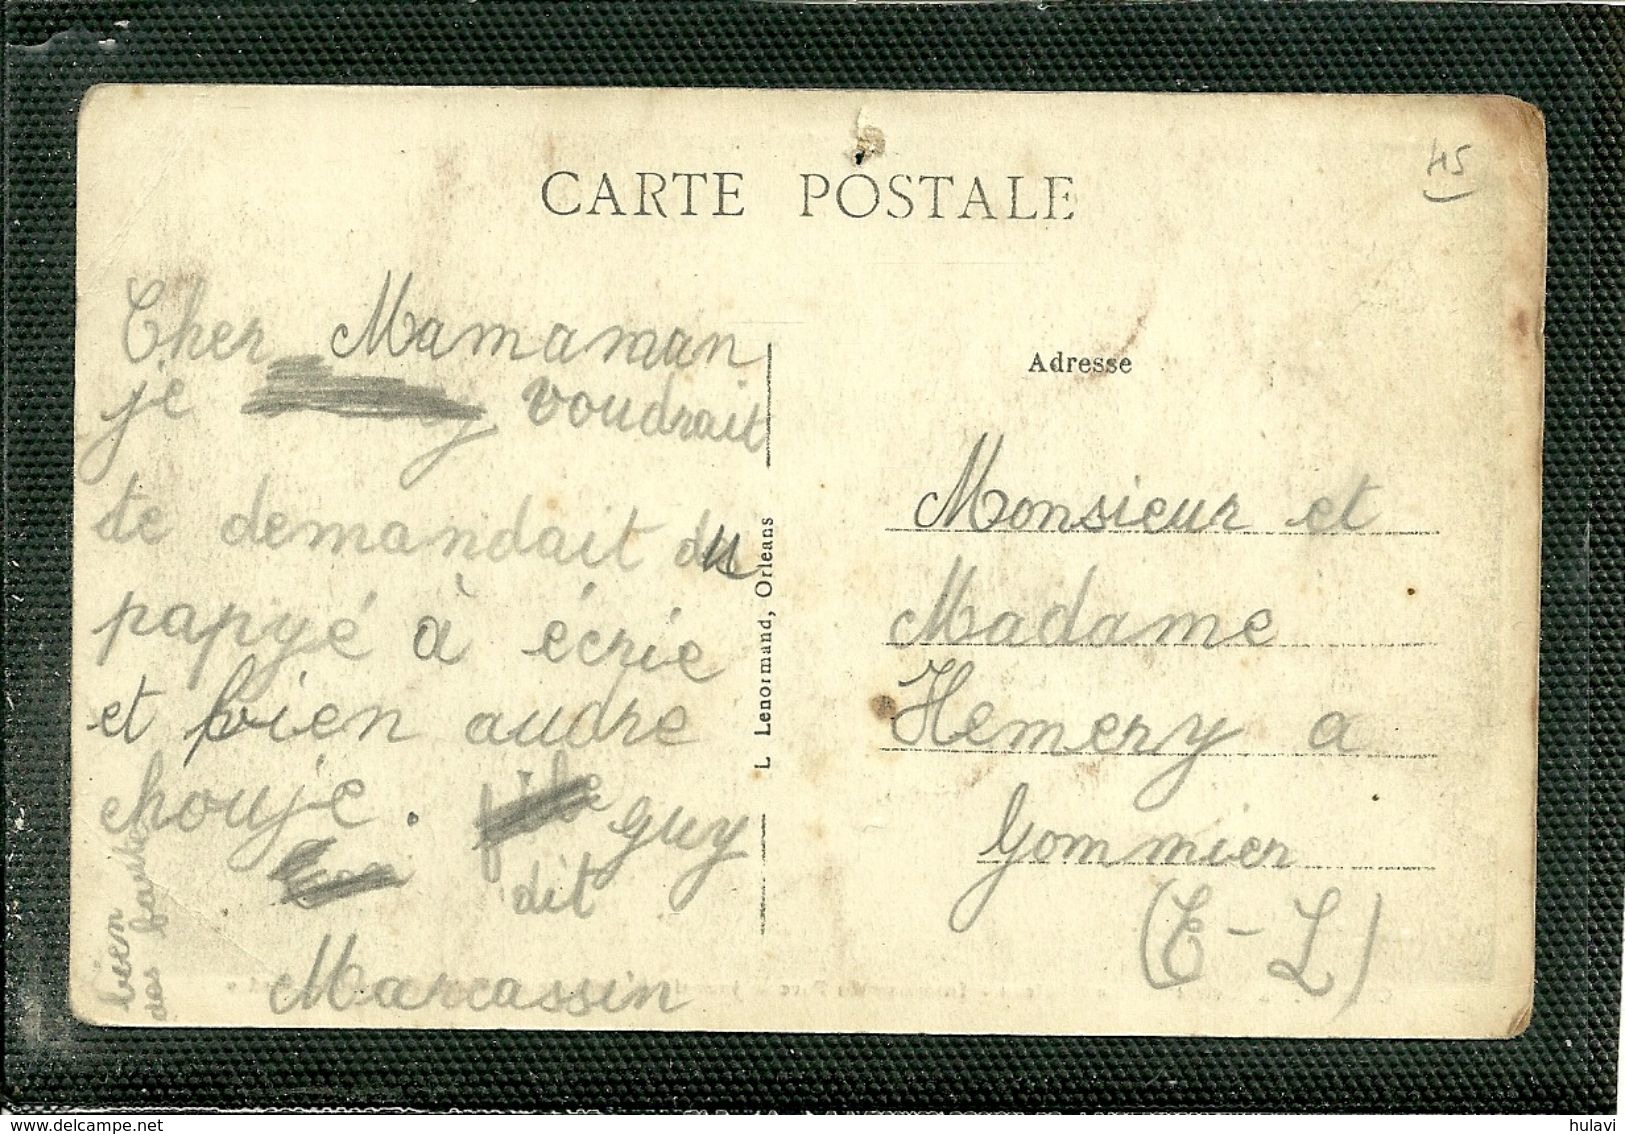 CARTE POSTALE
45
Cher Mamaman
je voudrait
te demandait du
papyé à écrie
et bien audre
chouje. guy
dit
Marcassin
bien
des faute
L Lenormand, Orleans
Adresse
Monsieur et
Madame
Hemery a
Gommier
(E-L)
delcampe.net
hulavi